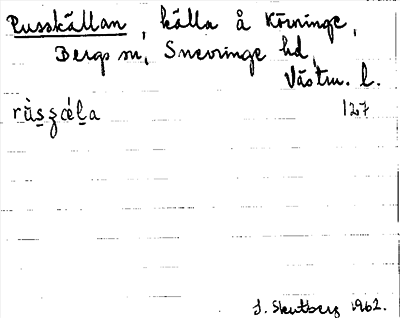 Russkällan, källa å Köringe,
Bergs sn, Snevringe hd,
Västm. l.
rùs̲ʒǽl̲a 127
J. Skutberg 1962.